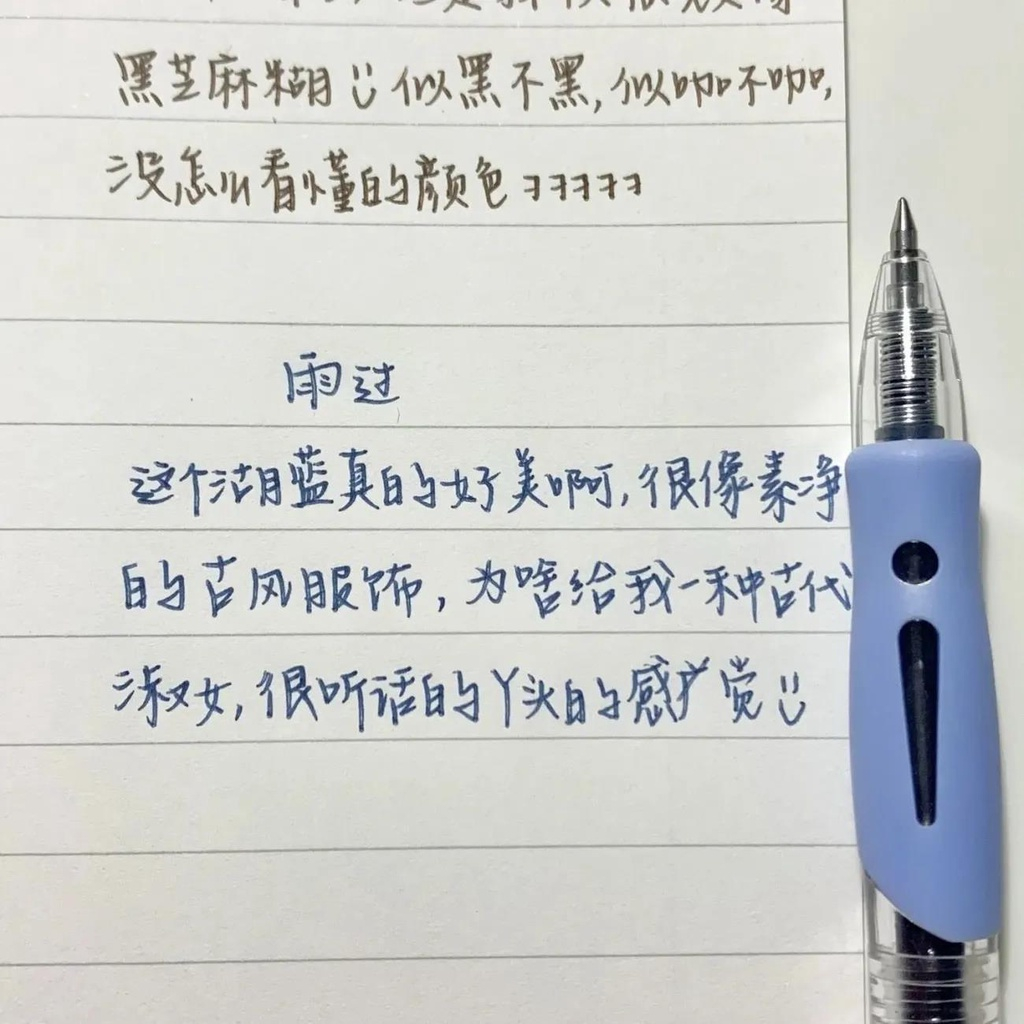 黑芝麻糊似黑不黑,似咖不咖,
没怎么看懂的颜色ヨヨヨヨヨ
雨过
这个湖蓝真的好美啊啊,很像素净
的古风服饰,为啥给我一种古代
淑女,很听话的丫头的感觉